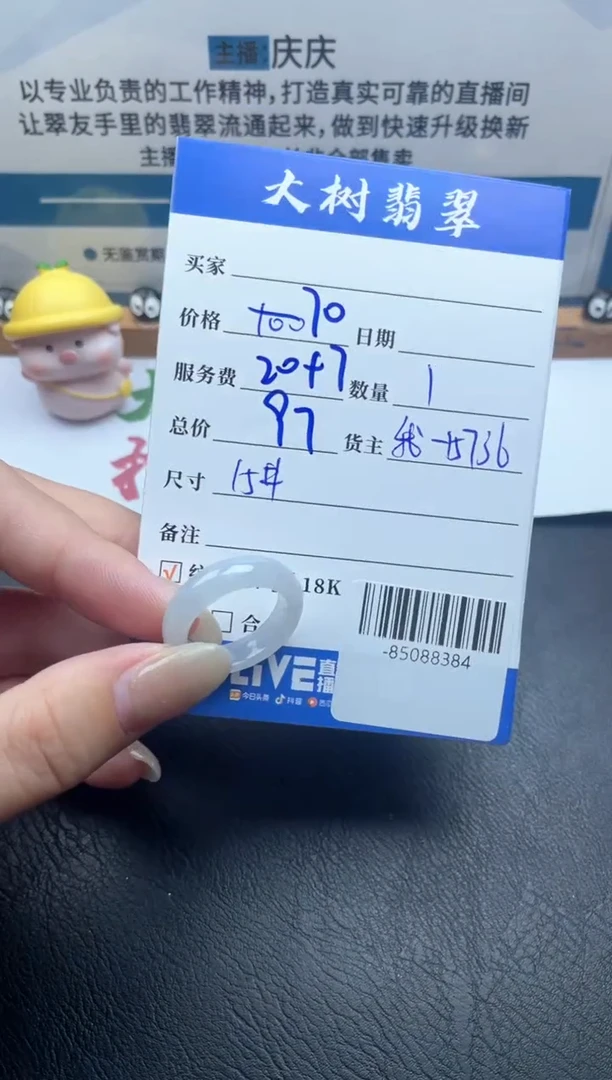 主播:庆庆
以专业负责的工作精神,打造真实可靠的直播间
让翠友手里的翡翠流通起来,做到快速升级换新
主播
大树翡翠
买家
价格 100 70 日期
服务费 20+7 数量 1
总价 97 货主
尺寸 15#
备注
18K
合
-85088384
LIVE 直播
今日头条 抖音